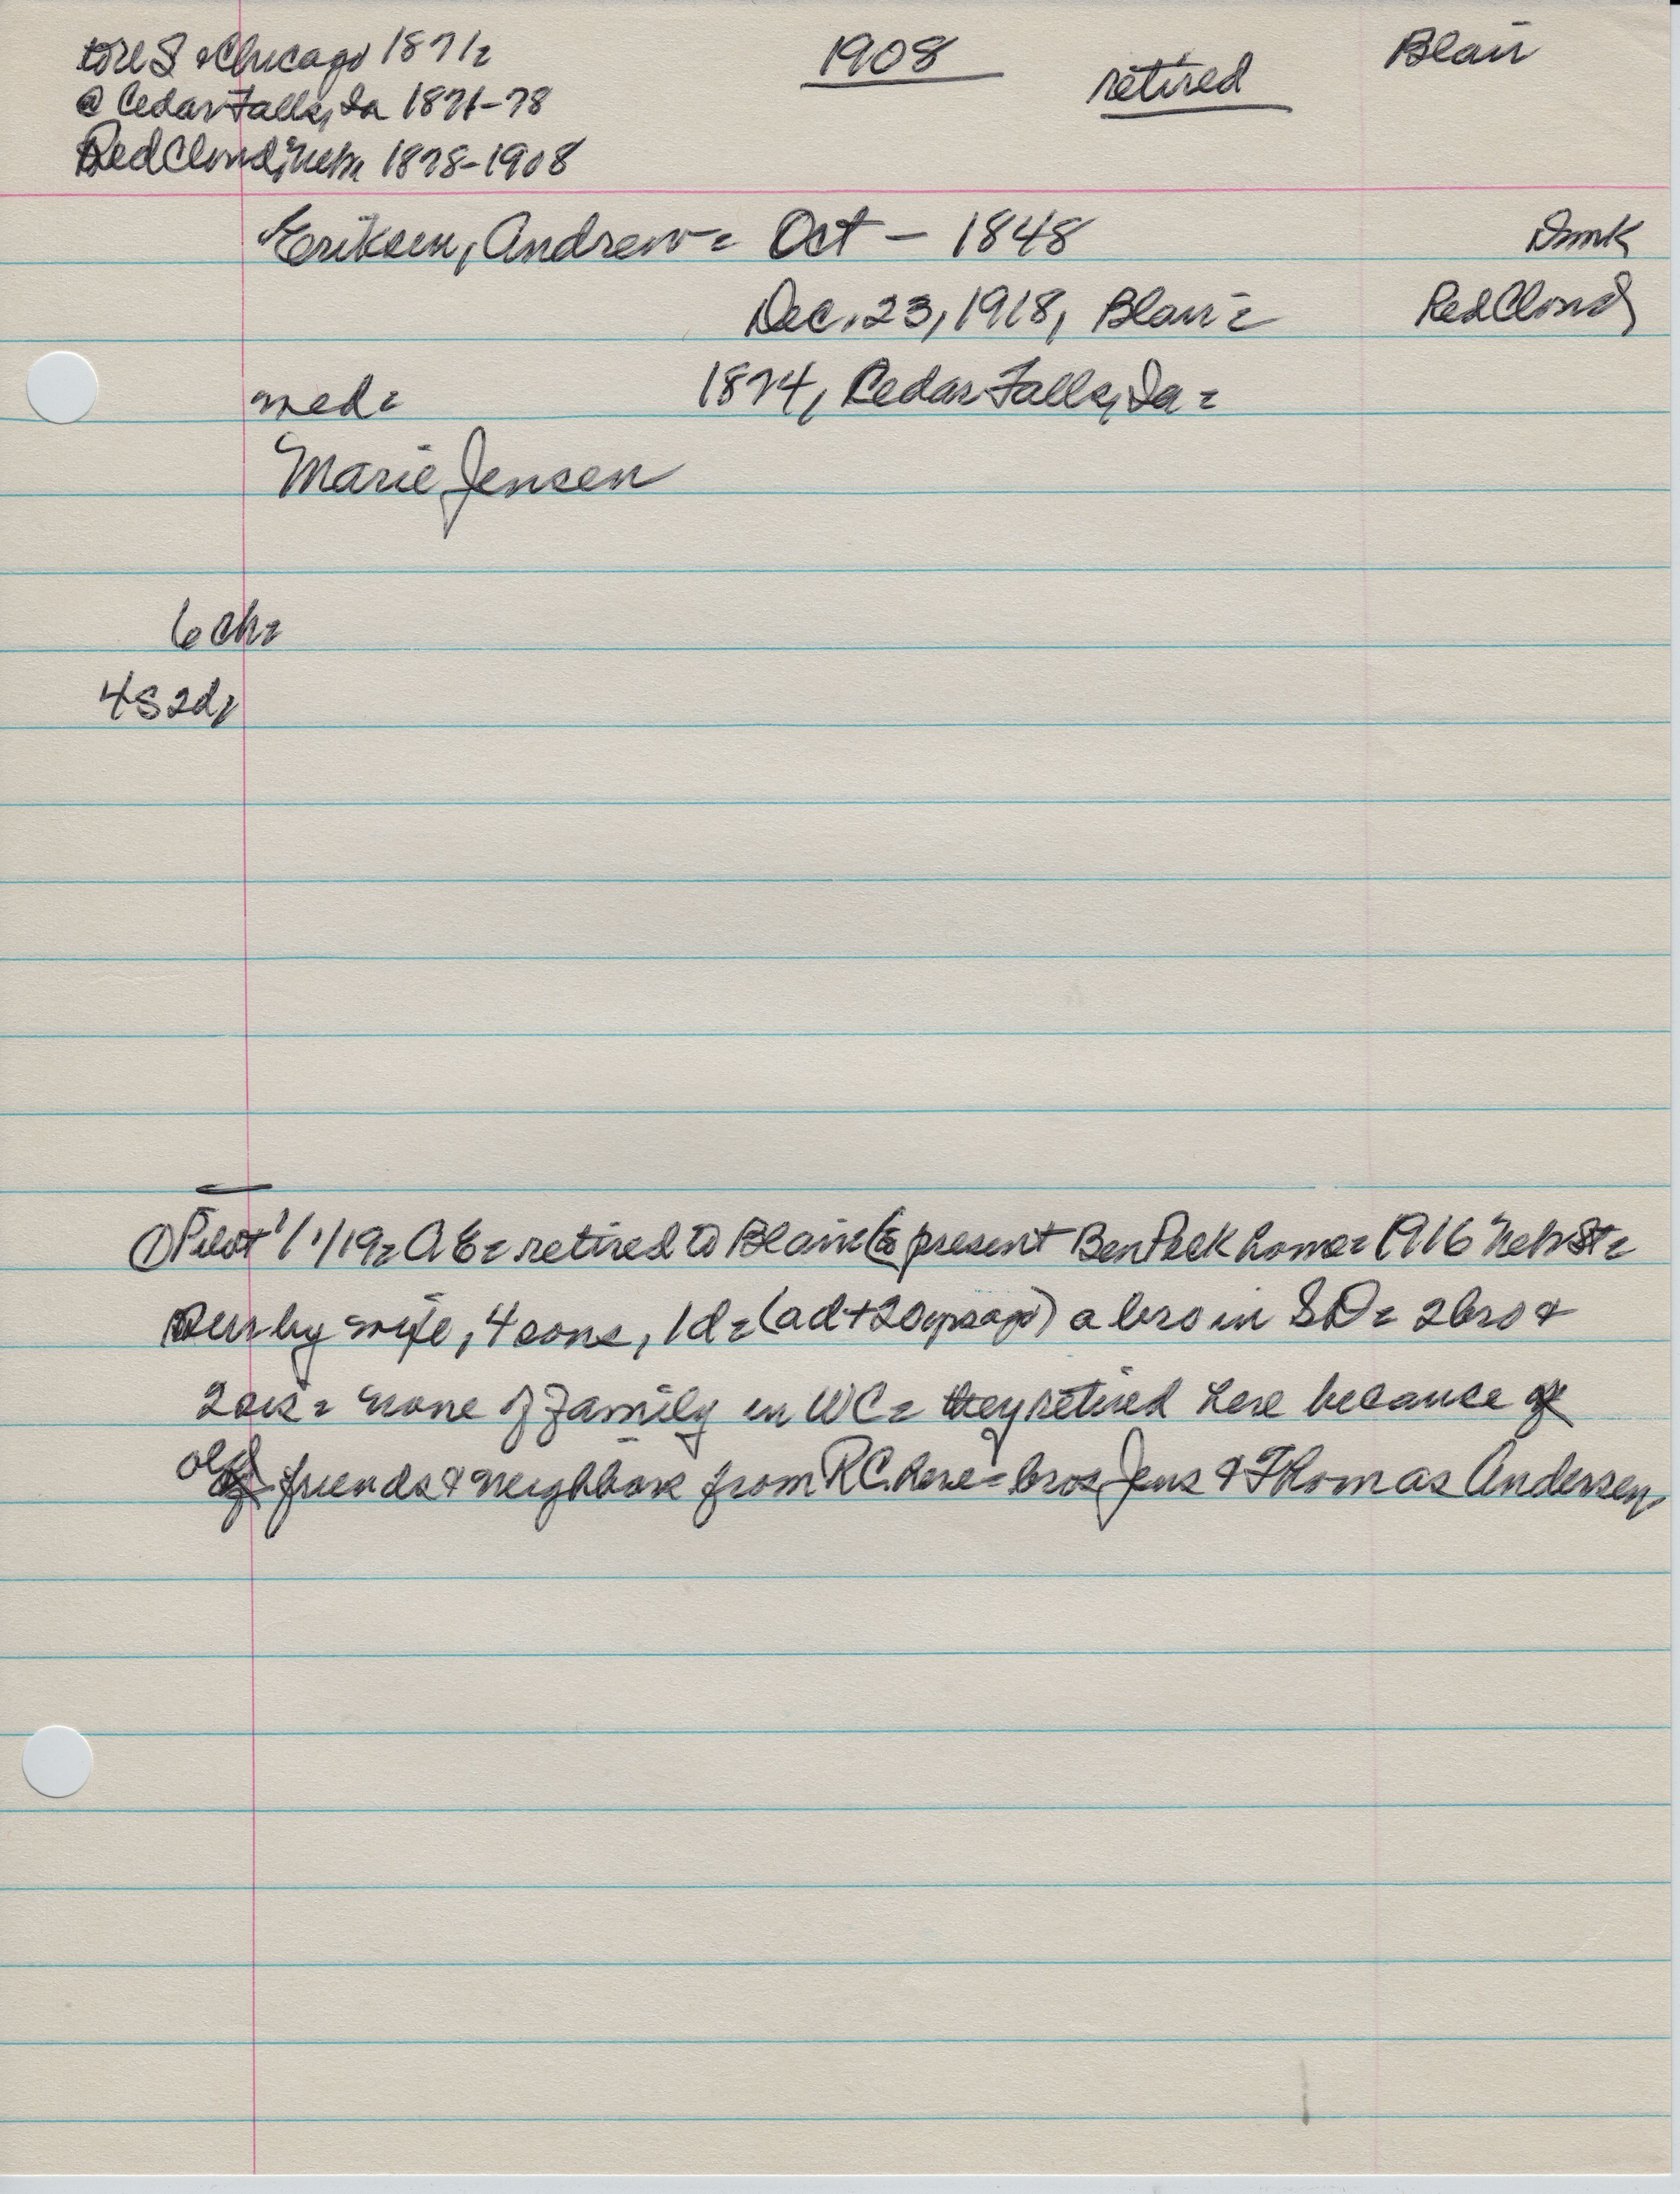 to U S & Chicago 1871=
1908
retired
Blair
@ Cedar Falls, Ia 1871-78
Red Cloud, Nebr 1878-1908
Eriksen, Andrew = Oct - 1848
Dmk
Dec. 23, 1918, Blair =
Red Cloud
med = 1874, Cedar Falls, Ia =
Marie Jensen
6 ch =
4s 2d,
① Pilot 1/1/19 = A E = retired to Blair (to present Ben Peck home = 1916 Nebr St =
Sur by wife, 4 sons, 1d = (a d + 20 yrs ago) a bro in SD = 2 bro &
2 sis = none of family in WC = they retired here because of
old friends & neighbors from RC here = bros Jens & Thomas Andersen,